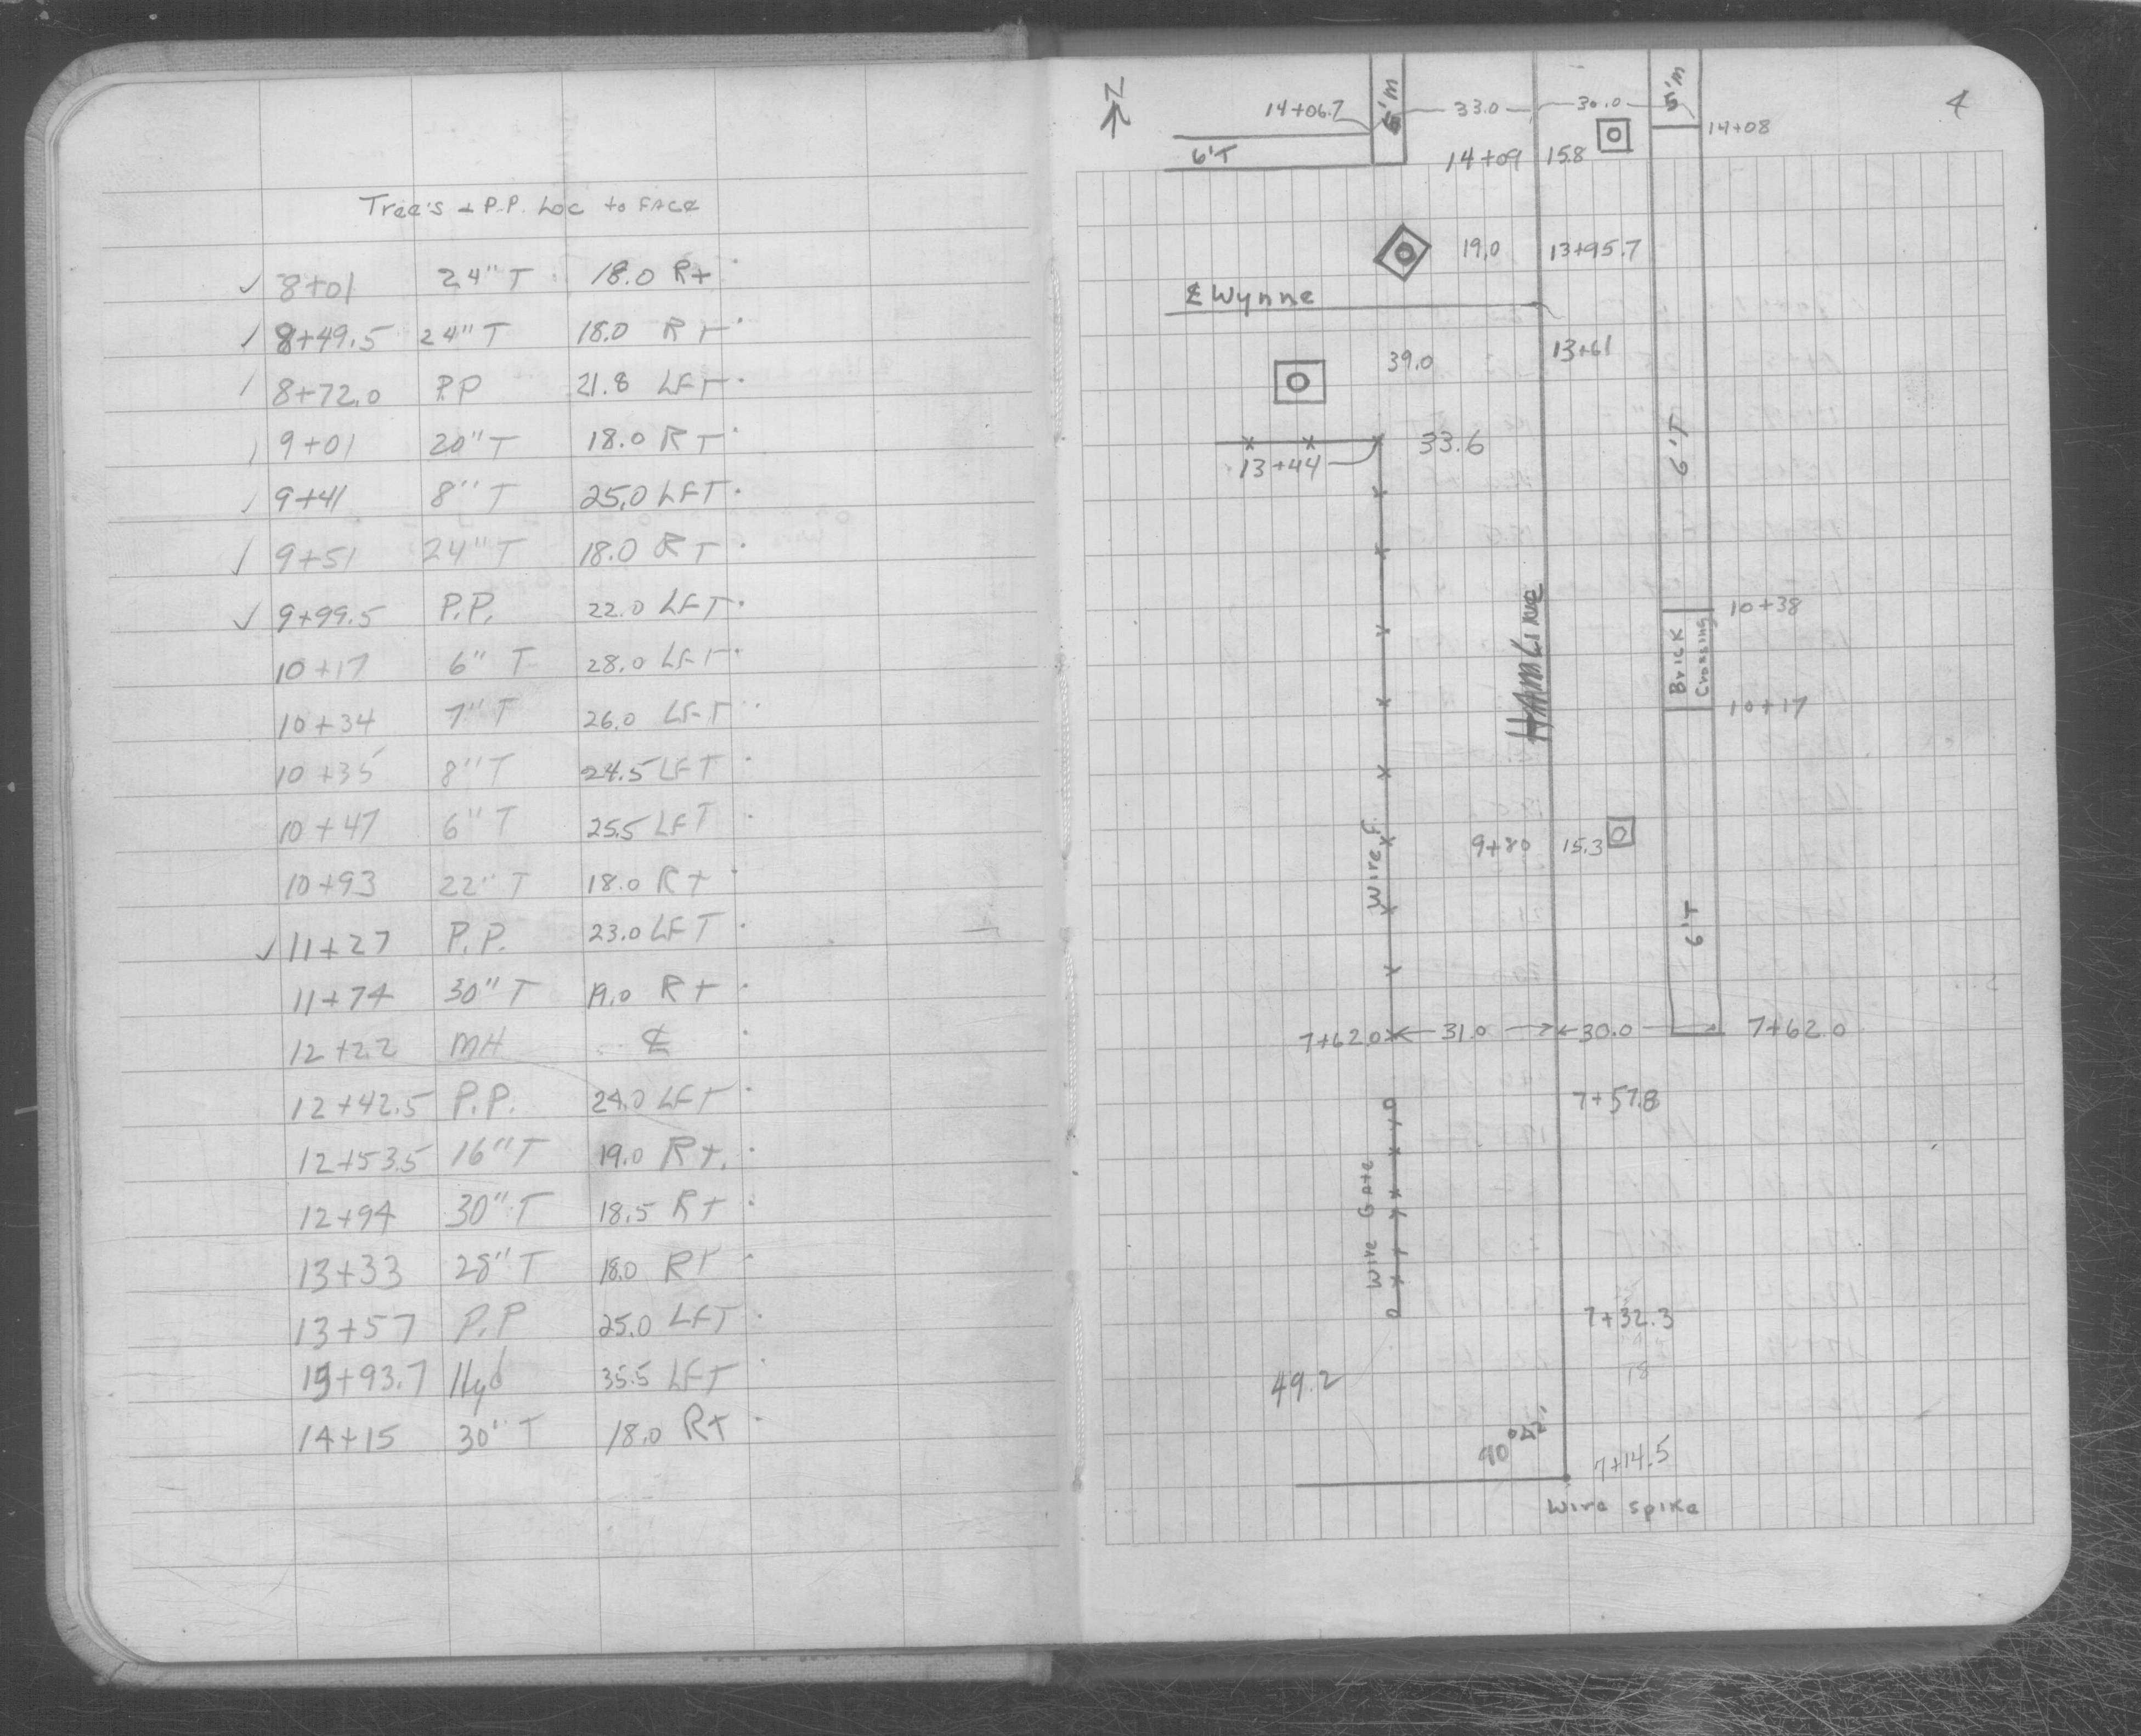 Tree's + P.P. Loc to FACE
✓ 8+01 24" T 18.0 R+
✓ 8+49.5 24" T 18.0 RT
/ 8+72.0 P.P 21.8 LFT
/ 9+01 20" T 18.0 RT
/ 9+41 8" T 25.0 LFT
✓ 9+51 24" T 18.0 RT
✓ 9+99.5 P.P. 22.0 LFT
10+17 6" T 28.0 LFT
10+34 7" T 26.0 LFT
10+35 8" T 24.5 LFT
10+47 6" T 25.5 LFT
10+93 22" T 18.0 R+
✓ 11+27 P.P. 23.0 LFT
11+74 30" T 19.0 R+
12+22 MH ℄
12+42.5 P.P. 24.0 LFT
12+53.5 16" T 19.0 R+.
12+94 30" T 18.5 R+
13+33 28" T 18.0 RT
13+57 P.P 25.0 LFT
13+93.7 Hyd 35.5 LFT
14+15 30" T 18.0 R+
4
N
14+06.7 5'M 33.0 30.0 5'M
14+08
6'T 14+09 15.8
19.0 13+95.7
℄ Wynne
39.0 13+61
33.6
13+44
6'T
HAMLINE
10+38
Brick
Crossing
10+17
Wire F.
9+80 15.3
6'T
7+62.0 31.0 30.0 7+62.0
7+57.8
Wire Gate
7+32.3
18
49.2
90°42'
7+14.5
Wire spike